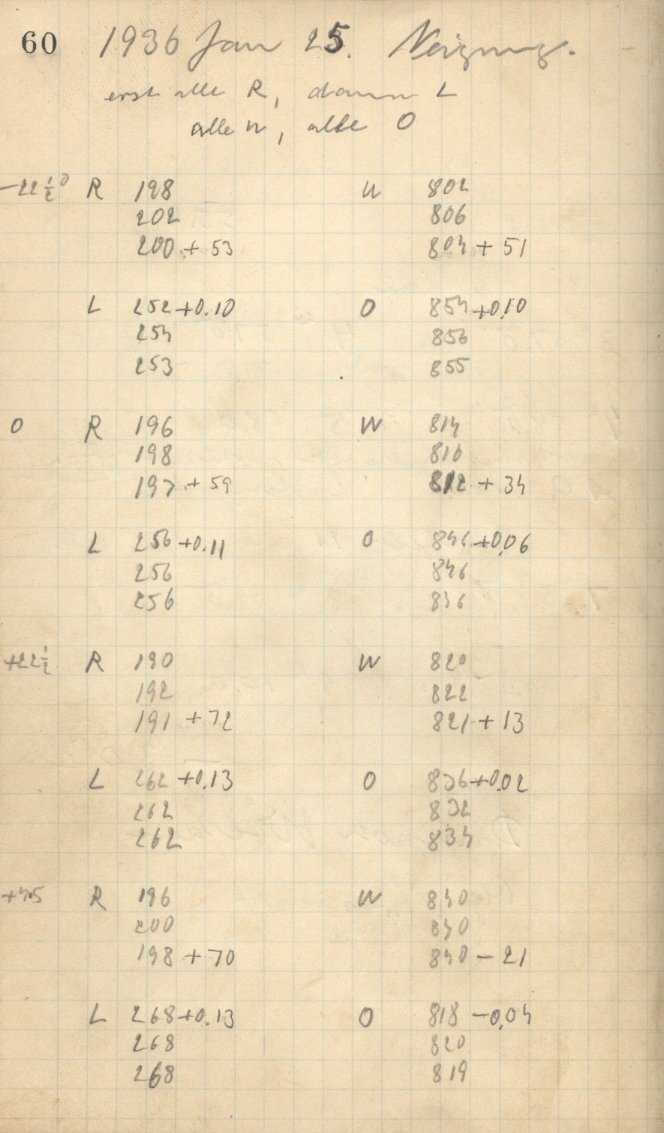 60 1936 Jan 25. Neigung.
erst alle R, dann L
alle W, alle O
-22½° R 198 W 802
202 806
200 + 53 804 + 51
L 252 +0.10 O 854 +0,10
254 856
253 855
0 R 196 W 814
198 810
197 + 59 812 + 34
L 256 +0.11 O 846 +0,06
256 846
256 846
+22½ R 190 W 820
192 822
191 + 72 821 + 13
L 262 +0.13 O 836 +0,02
262 832
262 834
+45 R 196 W 840
200 840
198 + 70 840 - 21
L 268 +0.13 O 818 -0,04
268 820
268 819